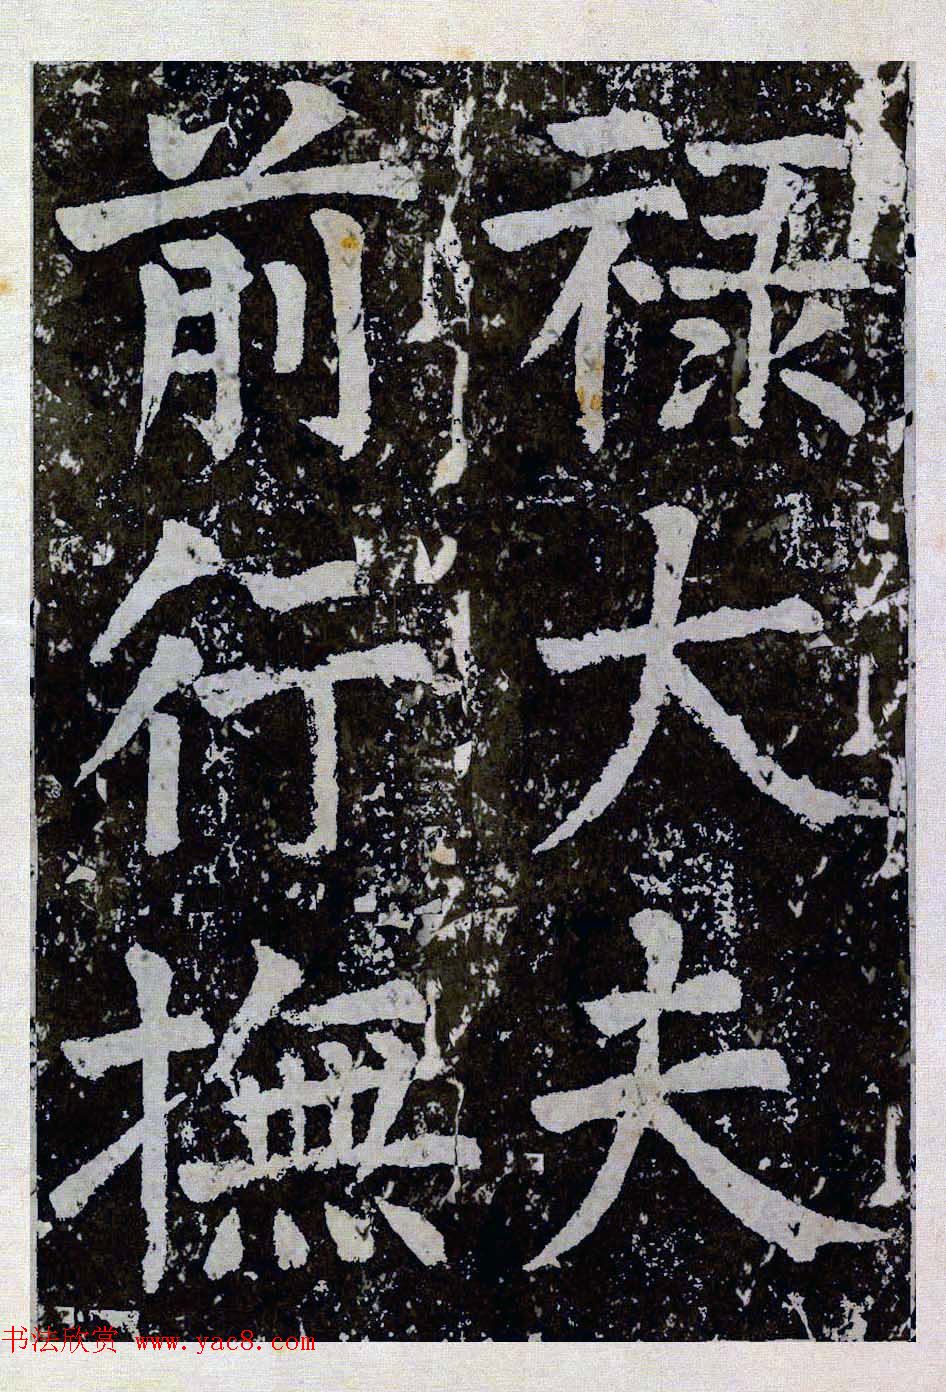 禄大夫
前行撫
书法欣赏 www.yac8.com